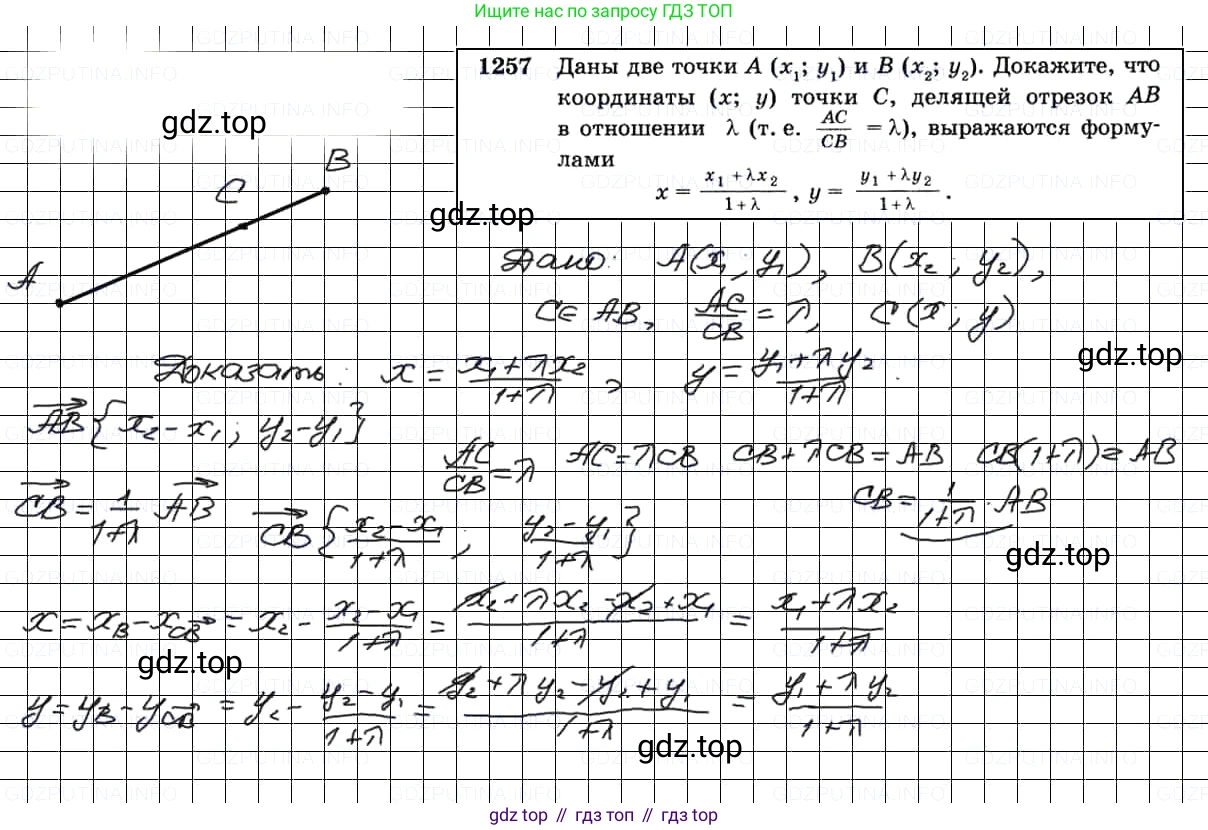 Ищите нас по запросу ГДЗ ТОП
1257 Даны две точки A (x₁; y₁) и B (x₂; y₂). Докажите, что
координаты (x; y) точки C, делящей отрезок AB
в отношении λ (т. е. AC/CB = λ), выражаются форму-
лами
x = (x₁ + λx₂)/(1 + λ), y = (y₁ + λy₂)/(1 + λ).
gdz.top
B
C
gdz.top
A
Дано: A(x₁; y₁), B(x₂; y₂),
C∈ AB, AC/CB = λ, C(x; y)
gdz.top
Доказать: x = (x₁ + λx₂)/(1+λ), y = (y₁ + λy₂)/(1+λ).
AB→{x₂ - x₁; y₂ - y₁}
AC/CB = λ AC = λCB CB + λCB = AB CB(1+λ) = AB
CB→ = 1/(1+λ) AB→ CB→{(x₂ - x₁)/(1+λ); (y₂ - y₁)/(1+λ)} CB = 1/(1+λ) · AB
gdz.top
x = x_B - x_CB→ = x₂ - (x₂ - x₁)/(1+λ) = (x₂ + λx₂ - x₂ + x₁)/(1+λ) = (x₁ + λx₂)/(1+λ)
gdz.top
y = y_B - y_CB→ = y₂ - (y₂ - y₁)/(1+λ) = (y₂ + λy₂ - y₂ + y₁)/(1+λ) = (y₁ + λy₂)/(1+λ)
gdz.top
gdz top // гдз топ // gdz top
GDZPUTINA.INFO